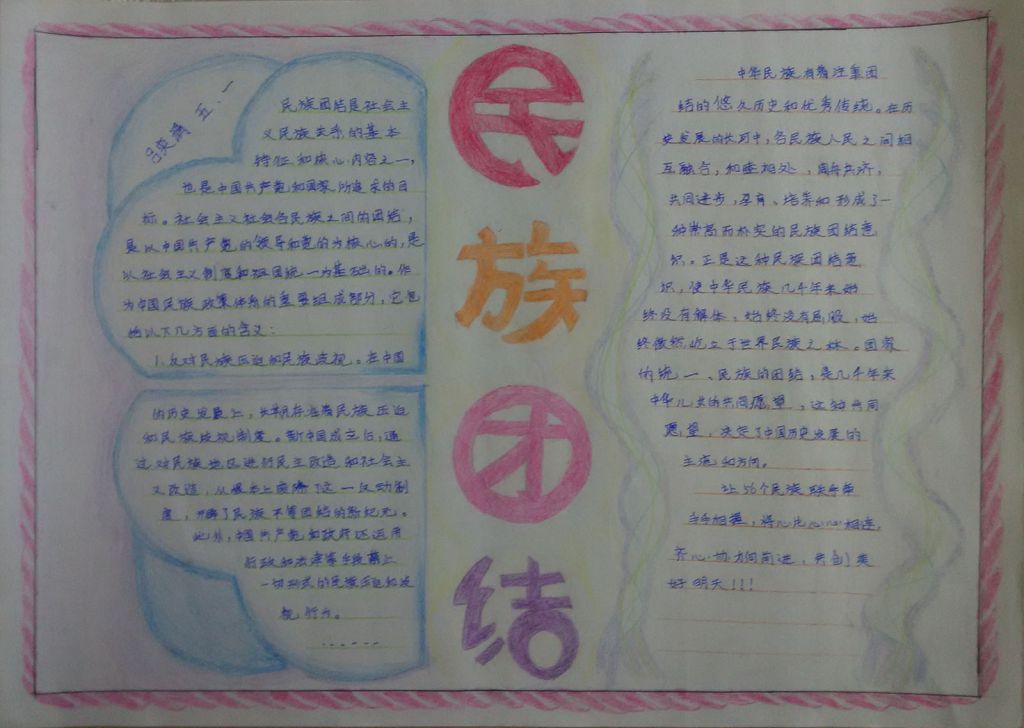 五.一
民族团结是社会主
义民族关系的基本
特征和核心内容之一,
也是中国共产党和国家所追求的目
标。社会主义社会各民族之间的团结,
是以中国共产党的领导和党的为核心的,是
以社会主义制度和祖国统一为基础的。作
为中国民族政策体系的重要组成部分,它包
括以下几方面的含义:
1.反对民族压迫和民族歧视。在中国
的历史发展上,长期存在着民族压迫
和民族歧视制度。新中国成立后,通
过对民族地区进行民主改造和社会主
义改造,从根本上废除了这一反动制
度,开辟了民族平等团结的新纪元。
此外,中国共产党和政府还运用
行政和法律等手段禁止
一切形式的民族压迫和歧
视行为。
......
民
族
团
结
中华民族有着注重团
结的悠久历史和优秀传统。在历
史发展的长河中,各民族人民之间相
互融合,和睦相处,周舟共济,
共同进步,孕育、培养和形成了一
种崇高而朴实的民族团结意
识。正是这种民族团结意
识,使中华民族几千年来始
终没有解体,始终没有屈服,始
终傲然屹立于世界民族之林。国家
的统一、民族的团结,是几千年来
中华儿女的共同愿望,这种共同
愿望,决定了中国历史发展的
主流和方向。
让56个民族联手
手手相握,将心比心心相连,
齐心协力向前进,共创美
好明天!!!